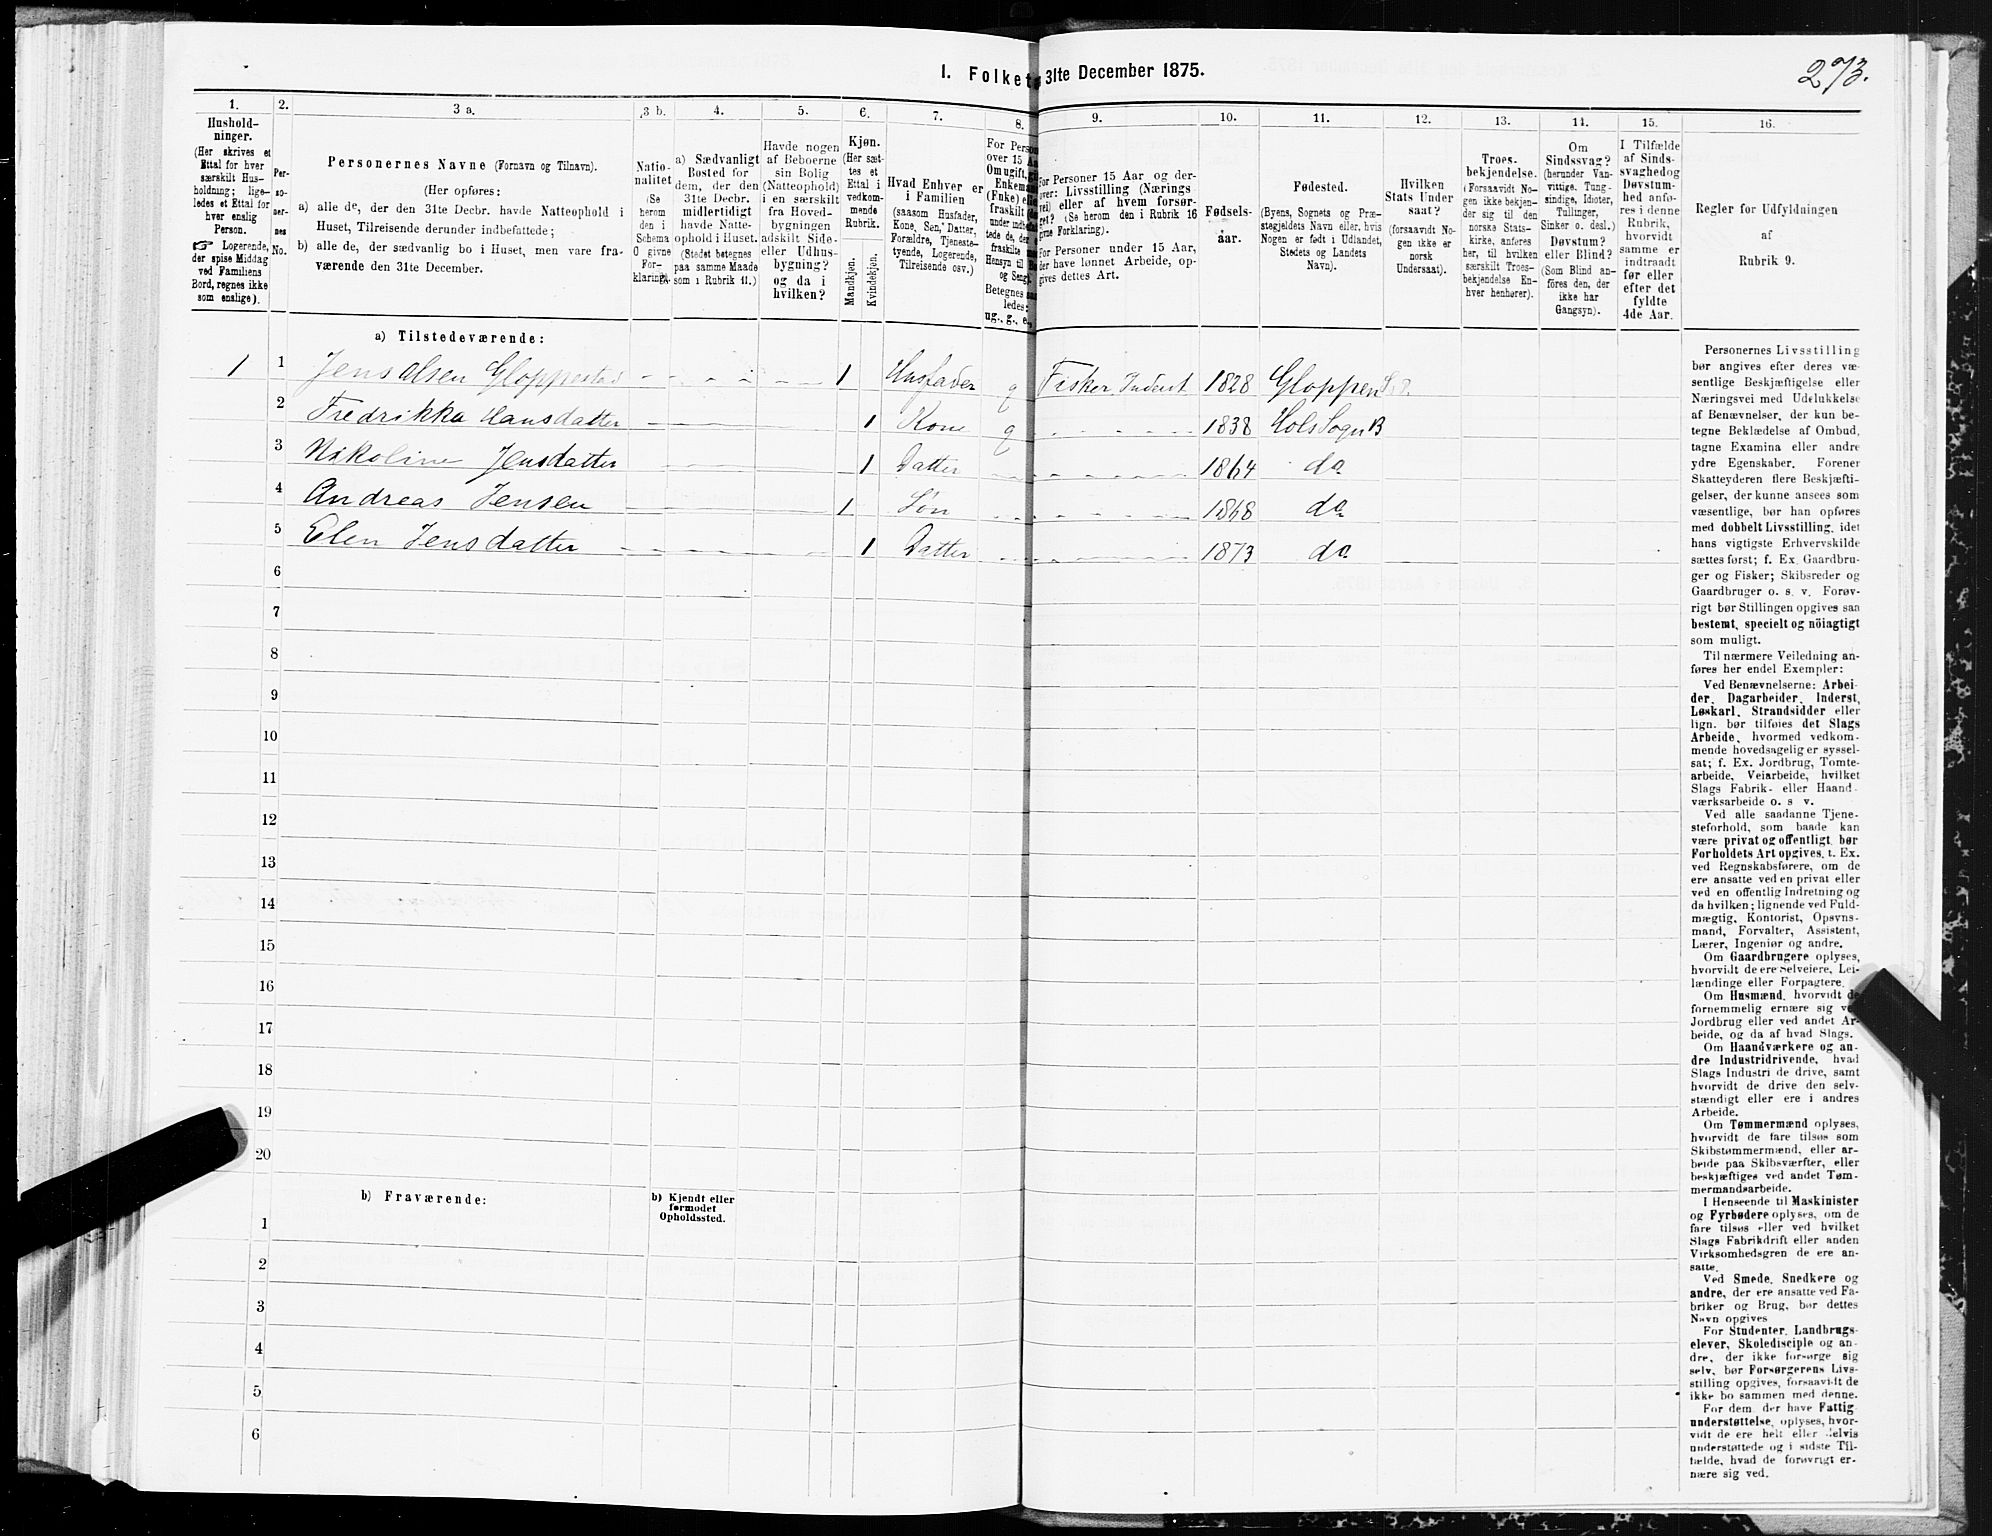 I. Folket 31te December 1875.
273.
1. 2. 3 a. 3 b. 4. 5. 6. 7. 8. 9. 10. 11. 12. 13. 14. 15. 16.
Hushold-
ninger.
(Her skrives et
Ettal for hver
særskilt Hus-
holdning; lige-
ledes et Ettal for
hver enslig
Person.
☞ Logerende,
der spise Middag
ved Familiens
Bord, regnes ikke
som enslige).
Per-
so-
ner-
nes
No.
Personernes Navne (Fornavn og Tilnavn).
(Her opføres:
a) alle de, der den 31te Decbr. havde Natteophold i
Huset, Tilreisende derunder indbefattede;
b) alle de, der sædvanlig bo i Huset, men vare fra-
værende den 31te December.
Natio-
nalitet
(Se
herom
den i
Schema
O givne
For-
klaring).
a) Sædvanligt
Bosted for
dem, der den
31te Decbr.
midlertidigt
havde Natte-
ophold i Huset.
(Stedet betegnes
paa samme Maade
som i Rubrik 11.)
Havde nogen
af Beboerne
sin Bolig
(Natteophold)
i en særskilt
fra Hoved-
bygningen
adskilt Side-
eller Udhus-
bygning?
og da i
hvilken?
Kjøn.
(Her sæt-
tes et
Ettal i
vedkom-
mende
Rubrik.
Mandkjøn.
Kvindekjøn.
Hvad Enhver er
i Familien
(saasom Husfader,
Kone, Søn, Datter,
Forældre, Tjeneste-
tyende, Logerende,
Tilreisende osv.)
For Person
over 15 Aa
Om ugift, gi
Enkemand
(Enke) elle
fraskilt
under indbe
tede de, der
fraskilte
Hensyn til Bo
og Seng).
Betegnes saa
ledes:
ug., g., e.,
For Personer 15 Aar og der-
over: Livsstilling (Nærings
vei) eller af hvem forsør-
get? (Se herom den i Rubrik 16
givne Forklaring).
For Personer under 15 Aar,
der have lønnet Arbeide, op-
gives dettes Art.
Fødsels-
aar.
Fødested.
(Byens, Sognets og Præ-
stegjeldets Navn eller, hvis
Nogen er født i Udlandet,
Stedets og Landets
Navn).
Hvilken
Stats Under
saat?
(forsaavidt No-
gen ikke er
norsk
Undersaat).
Troes-
bekjendelse.
(Forsaavidt No-
gen ikke bekjen-
der sig til den
norske Stats-
kirke, anføres
her, til hvilken
særskilt Troes-
bekjendelse En-
hver henhører).
Om
Sindssvag?
(herunder Van-
vittige, Tung-
sindige, Idioter,
Tullinger,
Sinker o. desl.)
Døvstum?
eller Blind?
(Som Blind an-
føres den, der
ikke har
Gangsyn).
I Tilfælde
af Sinds-
svaghedog
Døvstum-
hed anfø-
res i denne
Rubrik,
hvorvidt
samme er
indtraadt
før eller
efter det
fyldte
4de Aar.
Regler for Udfyldningen
af
Rubrik 9.
a) Tilstedeværende:
1 1 Jens Olsen Gloppestad 1 Husfader g Fisker Inderst 1828 Gloppen
2 Fredrikka Hansdatter 1 Kone g 1838 Hols Sogn B
3 Nikoline Jensdatter 1 Datter 1864 do
4 Andreas Jensen 1 Søn 1868 do
5 Elen Jensdatter 1 Datter 1873 do
6
7
8
9
10
11
12
13
14
15
16
17
18
19
20
b) Fraværende:
b) Kjendt eller
formodet
Opholdssted.
1
2
3
4
5
6
Personernes Livsstilling
bør angives efter deres væ-
sentlige Beskjæftigelse eller
Næringsvei med Udelukkelse
af Benævnelser, der kun be-
tegne Beklædelse af Ombud,
tagne Examina eller andre
ydre Egenskaber. Forener
Skatteyderen flere Beskjæfti-
gelser, der kunne ansees som
væsentlige, bør han opføres
med dobbelt Livsstilling, idet
hans vigtigste Erhvervskilde
sættes først; f. Ex. Gaardbru-
ger og Fisker; Skibsreder og
Gaardbruger o. s. v. Forøv-
rigt bør Stillingen opgives saa
bestemt, specielt og nöiagtigt
som muligt.
Til nærmere Veiledning an-
føres her endel Exempler:
Ved Benævnelserne: Arbei-
der, Dagarbeider, Inderst,
Løskarl, Strandsidder eller
lign. bør tilføies det Slags
Arbeide, hvormed vedkom-
mende hovedsagelig er syssel-
sat; f. Ex. Jordbrug, Tomte-
arbeide, Veiarbeide, hvilket
Slags Fabrik- eller Haand-
værksarbeide o. s v.
Ved alle saadanne Tjene-
steforhold, som baade kan
være privat og offentligt, bør
Forholdets Art opgives, t. Ex.
ved Regnskabsførere, om de
ere ansatte ved en privat eller
ved en offentlig Indretning og
da hvilken; lignende ved Fuld-
mægtig, Kontorist, Opsyns-
mand, Forvalter, Assistent,
Lærer, Ingeniør og andre.
Om Gaardbrugere oplyses,
hvorvidt de ere Selveiere, Lei-
lændinge eller Forpagtere.
Om Husmænd, hvorvidt de
fornemmelig ernære sig ve
Jordbrug eller ved andet Ar-
beide, og da af hvad Slags.
Om Haandværkere og an-
dre Industridrivende, hvad
Slags Industri de drive, samt
hvorvidt de drive den selv-
stændigt eller ere i andres
Arbeide.
Om Tømmermænd oplyses,
hvorvidt de fare tilsøs som
Skibstømmermænd, eller ar-
beide paa Skibsværfter, eller
beskjæftiges ved andet Tøm-
mermandsarbeide.
I Henseende til Maskinister
og Fyrbødere oplyses, om de
fare tilsøs eller ved hvilket
Slags Fabrikdrift eller anden
Virksomhedsgren de ere an-
satte.
Ved Smede, Snedkere og
andre, der ere ansatte ved Fa-
briker og Brug, bør dettes
Navn opgives
For Studenter, Landbrugs-
elever, Skoledisciple og an-
dre, der ikke forsørge sig
selv, bør Forsørgerens Livs-
stilling opgives, forsaavidt de
ikke bo sammen med denne.
For dem, der have Fattig-
understøttelse, oplyses, hvor-
vidt de ere helt eller delvis
understøttede og i sidste Til-
fælde, hvad de forøvrigt er-
nære sig ved.